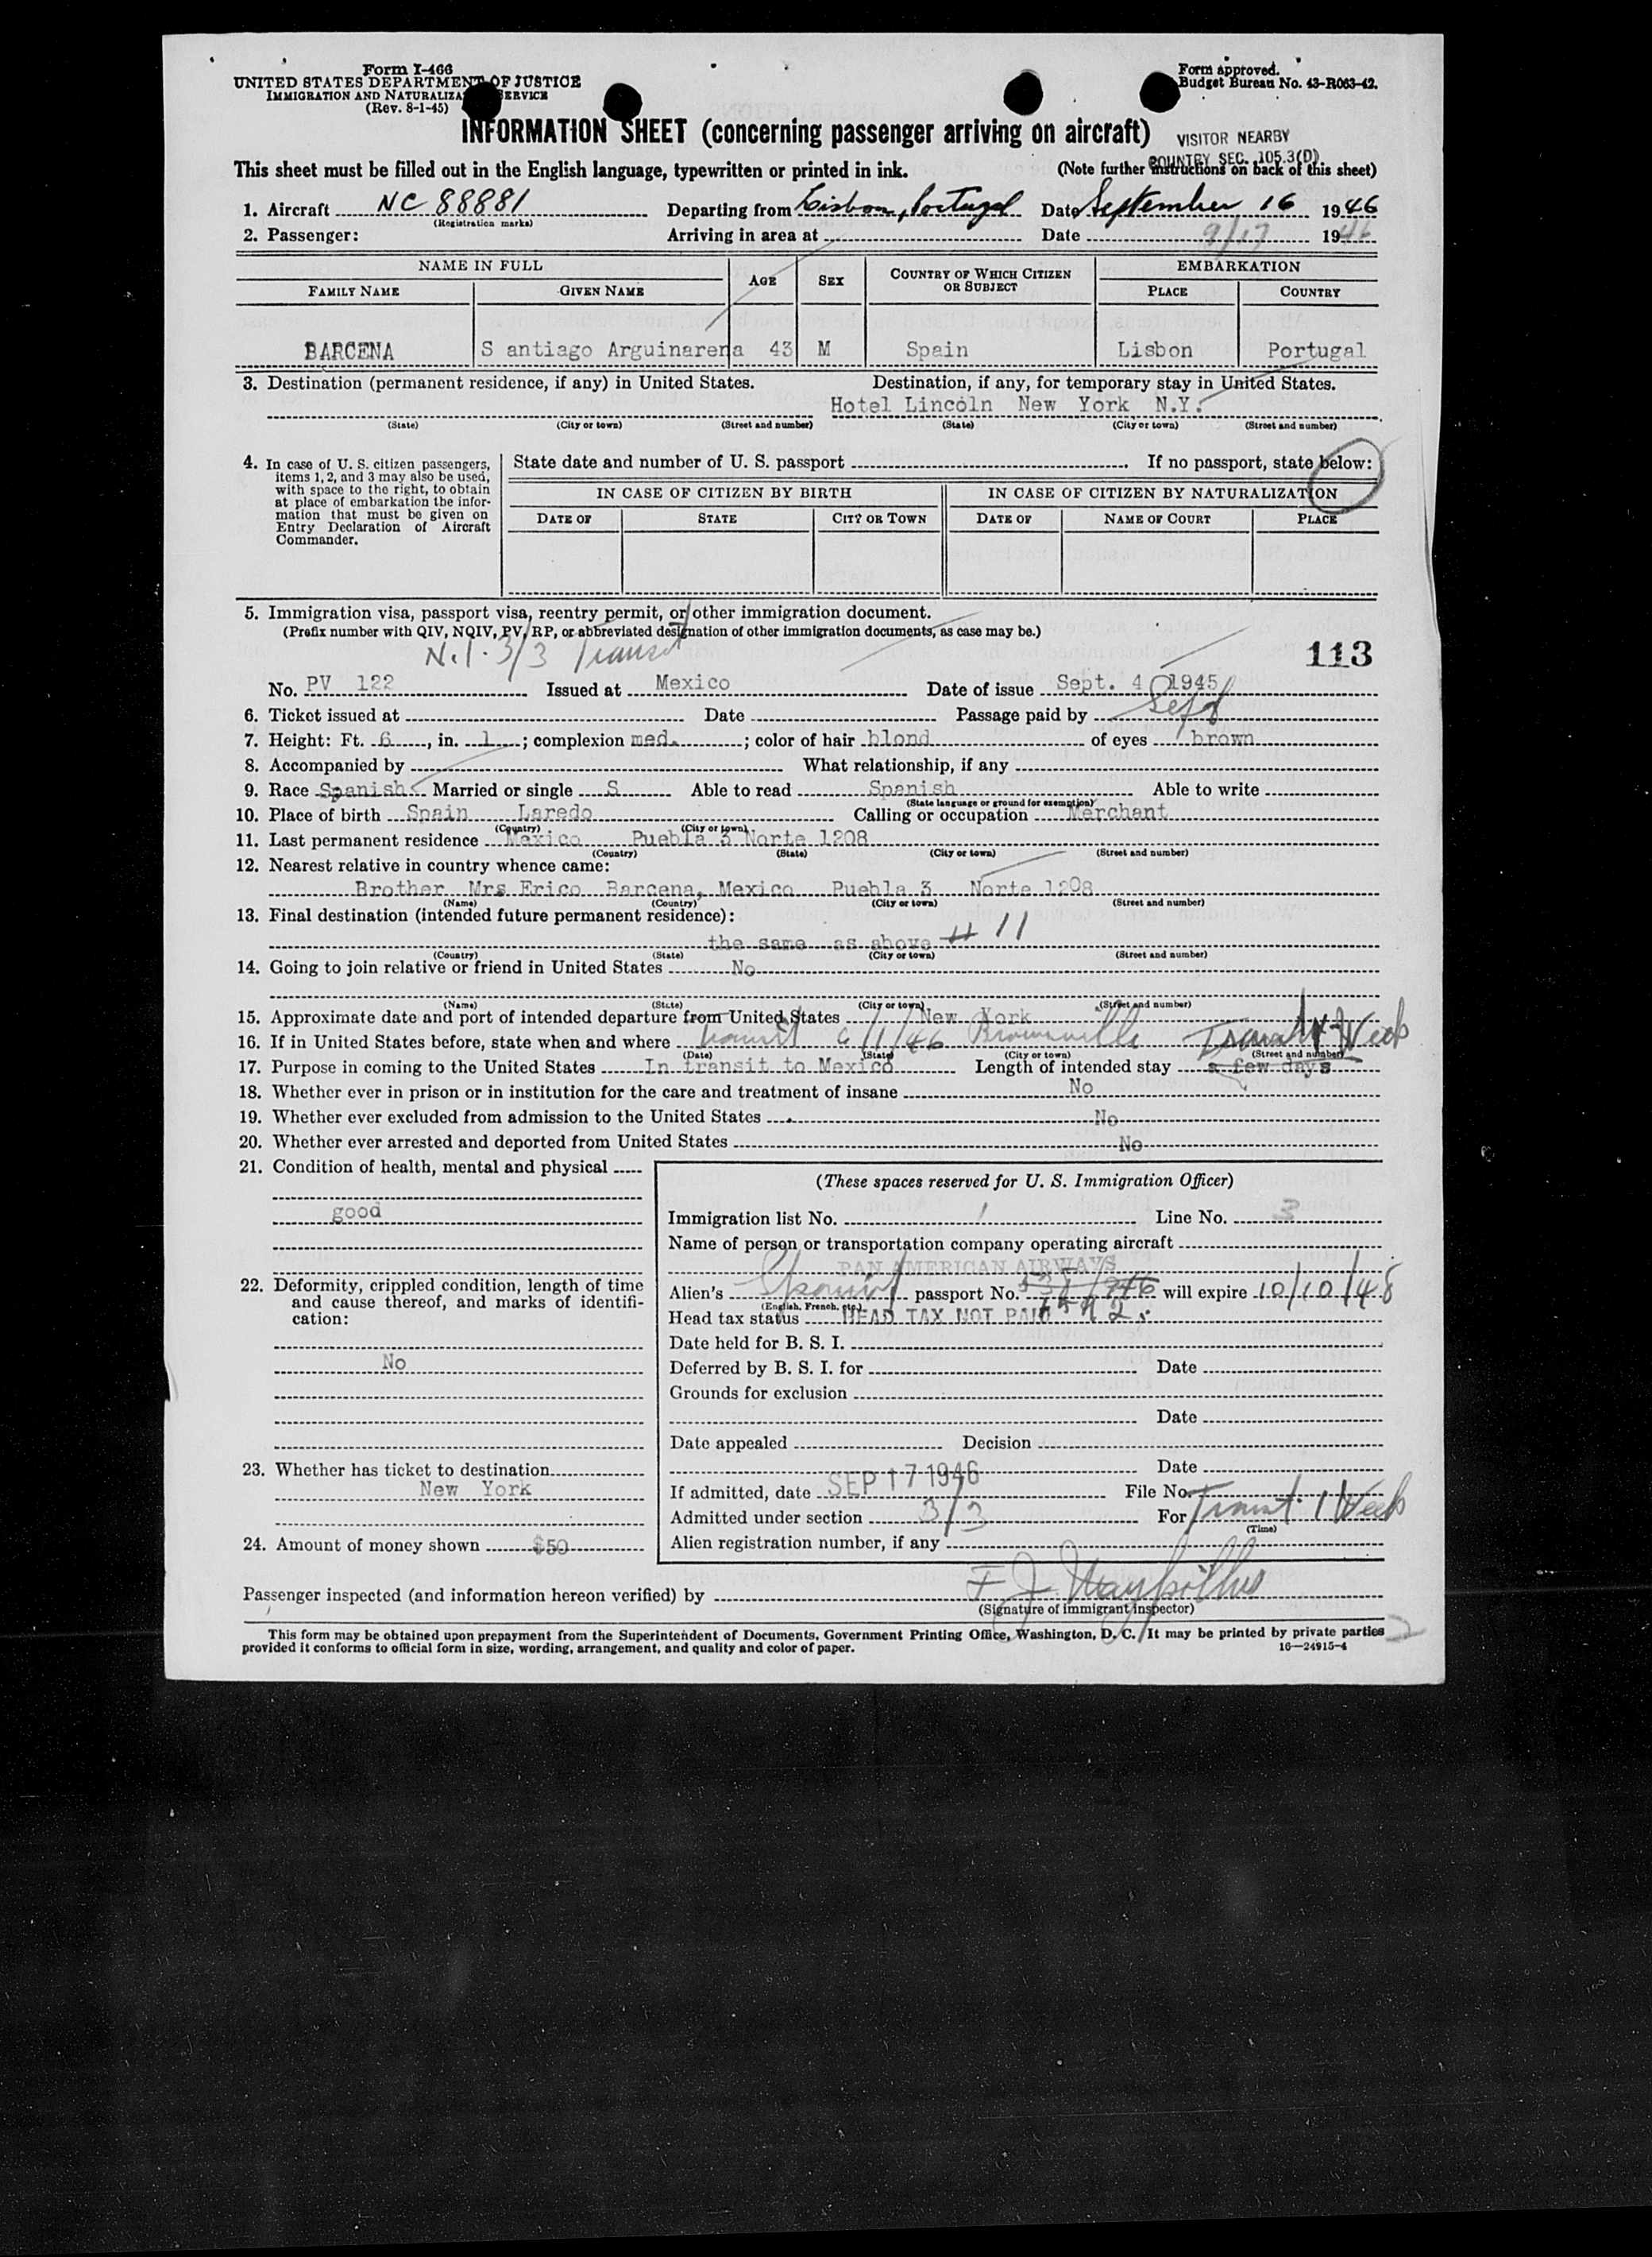 Form I-466
UNITED STATES DEPARTMENT OF JUSTICE
IMMIGRATION AND NATURALIZA SERVICE
(Rev. 8-1-45)
Form approved.
Budget Bureau No. 43-R063-42.
INFORMATION SHEET (concerning passenger arriving on aircraft)
VISITOR NEARBY
COUNTRY SEC. 105.3(D)
This sheet must be filled out in the English language, typewritten or printed in ink. (Note further instructions on back of this sheet)
1. Aircraft NC 88881 Departing from Lisbon, Portugal Date September 16 1946
(Registration marks)
2. Passenger: Arriving in area at Date 9/17 1946
NAME IN FULL AGE SEX COUNTRY OF WHICH CITIZEN OR SUBJECT EMBARKATION
FAMILY NAME GIVEN NAME PLACE COUNTRY
BARCENA S antiago Arguinarena 43 M Spain Lisbon Portugal
3. Destination (permanent residence, if any) in United States. Destination, if any, for temporary stay in United States.
Hotel Lincoln New York N.Y.
(State) (City or town) (Street and number) (State) (City or town) (Street and number)
4. In case of U. S. citizen passengers, items 1, 2, and 3 may also be used, with space to the right, to obtain at place of embarkation the information that must be given on Entry Declaration of Aircraft Commander.
State date and number of U. S. passport If no passport, state below:
IN CASE OF CITIZEN BY BIRTH IN CASE OF CITIZEN BY NATURALIZATION
DATE OF STATE CITY OR TOWN DATE OF NAME OF COURT PLACE
5. Immigration visa, passport visa, reentry permit, or other immigration document.
(Prefix number with QIV, NQIV, PV, RP, or abbreviated designation of other immigration documents, as case may be.)
N.I. 3/3 Transit 113
No. PV 122 Issued at Mexico Date of issue Sept. 4 1945
6. Ticket issued at Date Passage paid by Self
7. Height: Ft. 6, in. 1; complexion med.; color of hair blond of eyes brown
8. Accompanied by What relationship, if any
9. Race Spanish Married or single S Able to read Spanish Able to write
(State language or ground for exemption)
10. Place of birth Spain Laredo Calling or occupation Merchant
(Country) (City or town)
11. Last permanent residence Mexico Puebla 3 Norte 1208
(Country) (State) (City or town) (Street and number)
12. Nearest relative in country whence came:
Brother Mrs Erico Barcena, Mexico Puebla 3 Norte 1208
(Name) (Country) (City or town) (Street and number)
13. Final destination (intended future permanent residence):
the same as above # 11
(Country) (State) (City or town) (Street and number)
14. Going to join relative or friend in United States No
(Name) (State) (City or town) (Street and number)
15. Approximate date and port of intended departure from United States New York
16. If in United States before, state when and where Transit 6/1/46 Brownsville Transit 1 Week
(Date) (State) (City or town) (Street and number)
17. Purpose in coming to the United States In transit to Mexico Length of intended stay a few days
18. Whether ever in prison or in institution for the care and treatment of insane No
19. Whether ever excluded from admission to the United States No
20. Whether ever arrested and deported from United States No
21. Condition of health, mental and physical
good
22. Deformity, crippled condition, length of time and cause thereof, and marks of identification:
No
23. Whether has ticket to destination
New York
24. Amount of money shown $50
(These spaces reserved for U. S. Immigration Officer)
Immigration list No. 1 Line No. 3
Name of person or transportation company operating aircraft
PAN AMERICAN AIRWAYS
Alien's Spanish passport No. will expire 10/10/48
(English, French, etc.)
Head tax status HEAD TAX NOT PAID
Date held for B. S. I.
Deferred by B. S. I. for Date
Grounds for exclusion
Date
Date appealed Decision
Date
If admitted, date SEP 17 1946 File No.
Admitted under section 3/3 For Transit 1 Week
(Time)
Alien registration number, if any
Passenger inspected (and information hereon verified) by
(Signature of immigrant inspector)
This form may be obtained upon prepayment from the Superintendent of Documents, Government Printing Office, Washington, D. C. It may be printed by private parties
provided it conforms to official form in size, wording, arrangement, and quality and color of paper. 16—24915-4